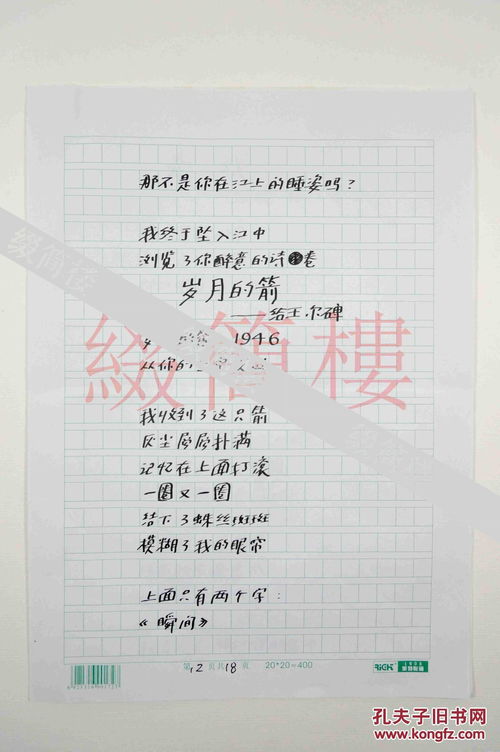 那不是你在江上的睡姿吗？
我终于坠入江中
浏览了你醉意的诗卷
岁月的箭
——给王尔碑
1946
从你的
我收到了这只箭
灰尘层层扑满
记忆在上面打滚
一圈又一圈
结下了蛛丝斑斑
模糊了我的眼帘
上面只有两个字：
《瞬间》
第12页共18页 20*20=400
RiCH
缀簡樓
孔夫子旧书网
kongfz.com